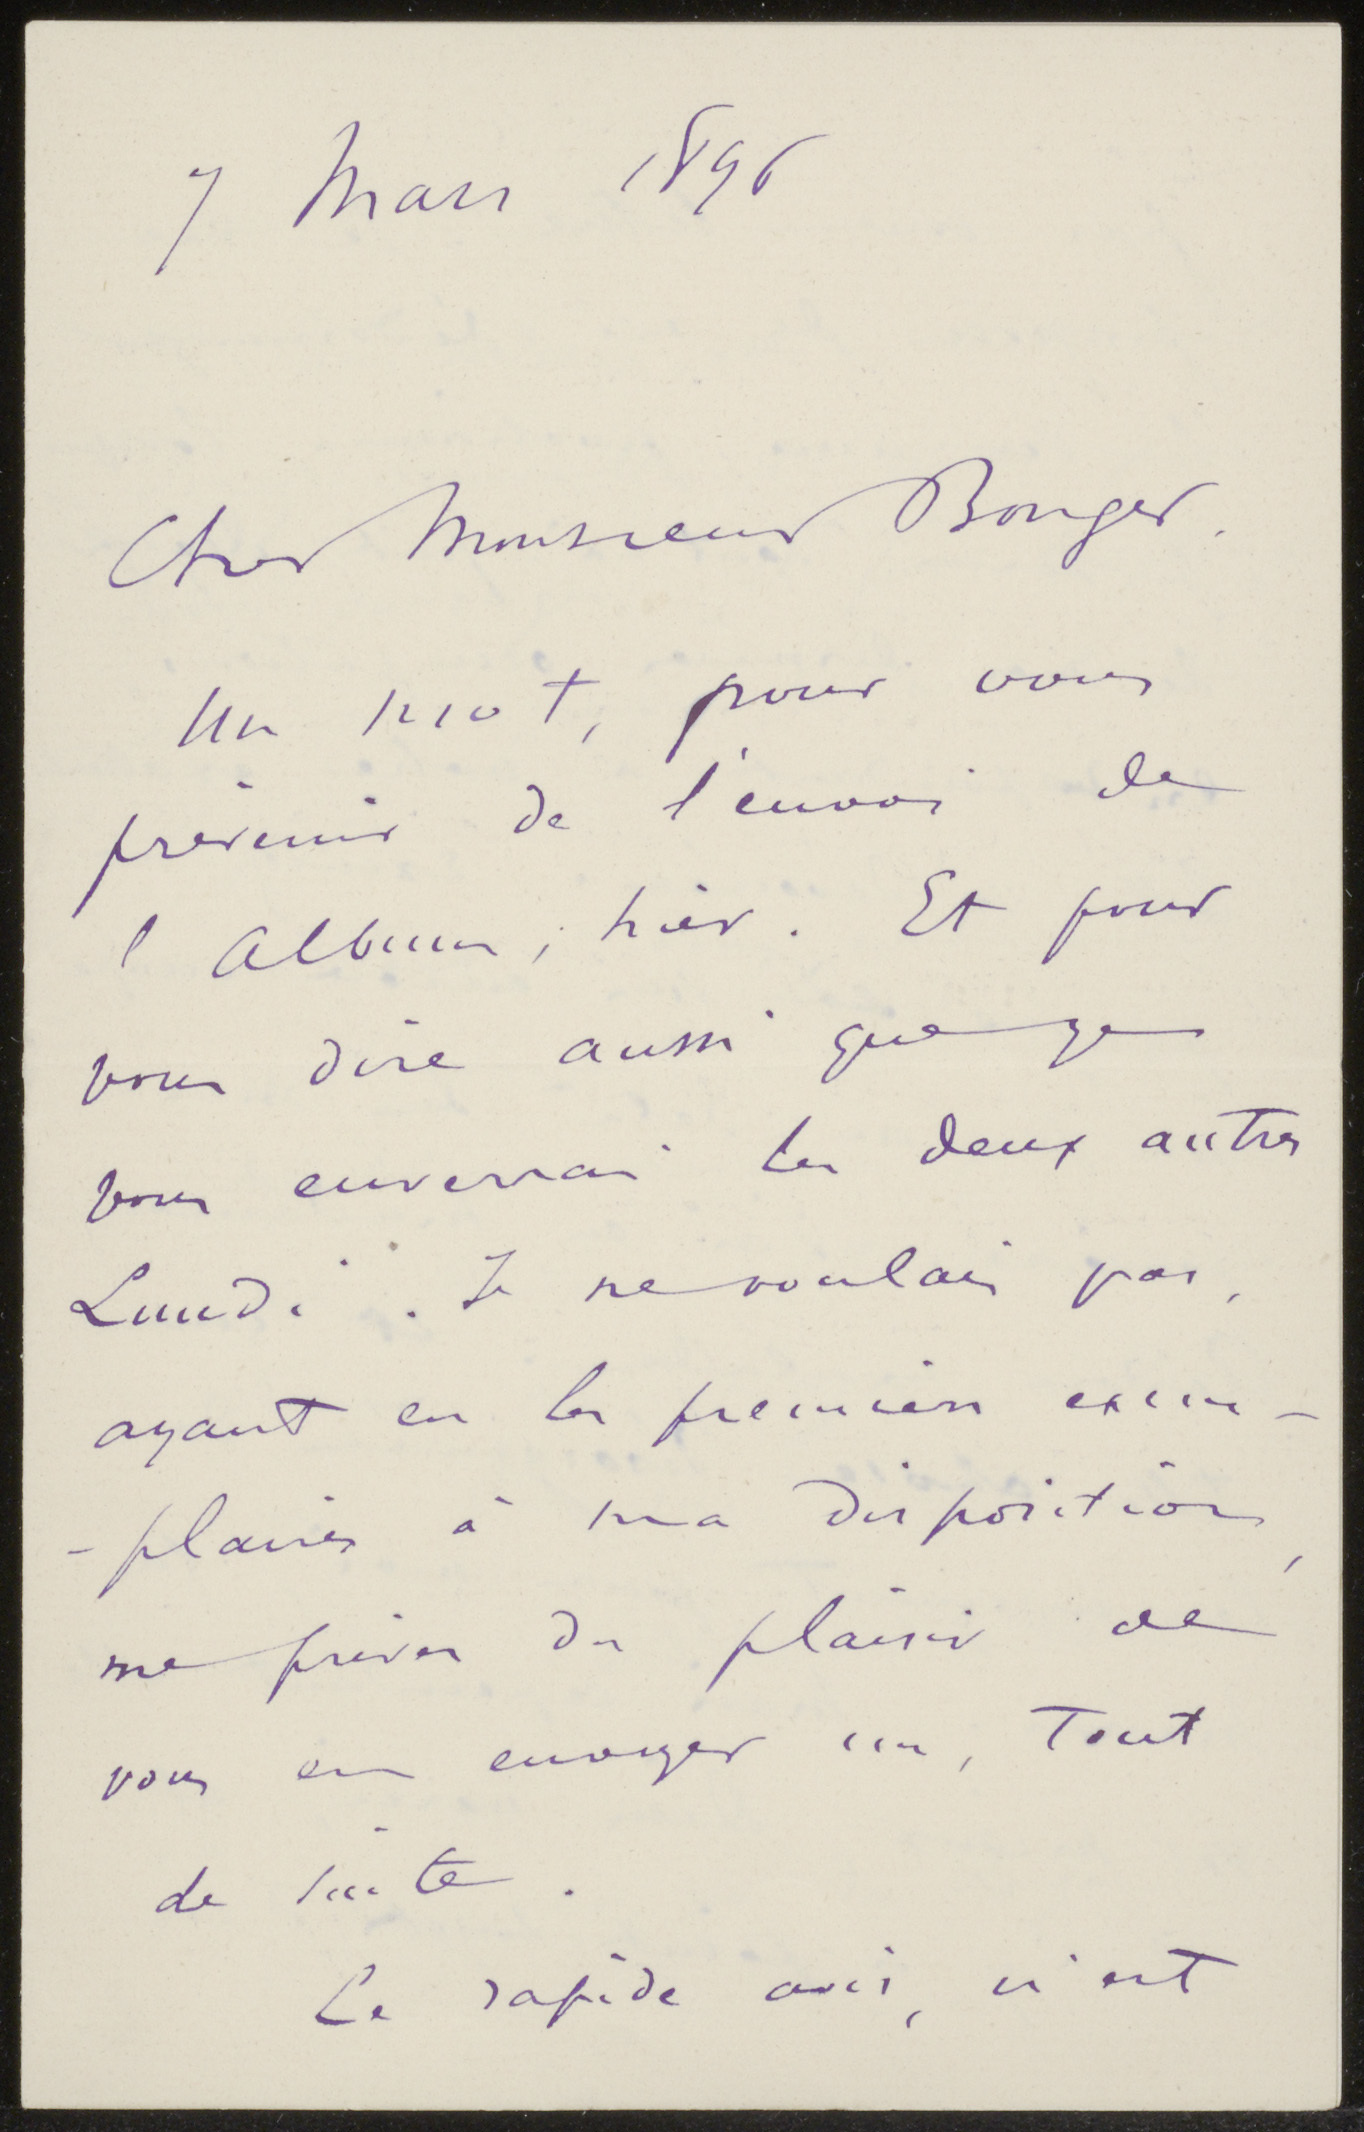 7 Mars 1896
Cher Monsieur Bonger.
Un mot, pour vous
prévenir de l'envoi de
l'Album, hier. Et pour
vous dire aussi que je
vous enverrai les deux autres
Lundi. Je ne voulais pas,
ayant eu les premiers exem-
-plaires à ma disposition,
me priver du plaisir de
vous en envoyer un, tout
de suite.
Ce rapide avis, n'est